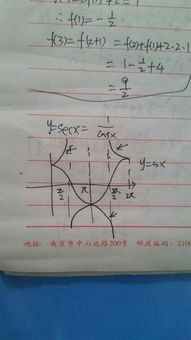 ∴ f(1) = -1/2
f(3) = f(2+1) = f(2)+f(1)+2·2·1
= 1 - 1/2 + 4
= 9/2
y=secx = 1/cosx
y=cosx
π/2 π 3π/2 2π
地址：南京市中山北路200号 邮政编码：2100